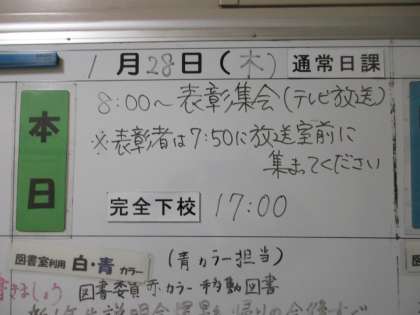 1月28日(木) 通常日課
本日
8:00～ 表彰集会(テレビ放送)
※表彰者は7:50に放送室前に
集まってください
完全下校 17:00
図書室利用 白・青カラー (青カラー担当)
きましょう 図書委員 赤カラー 移動図書